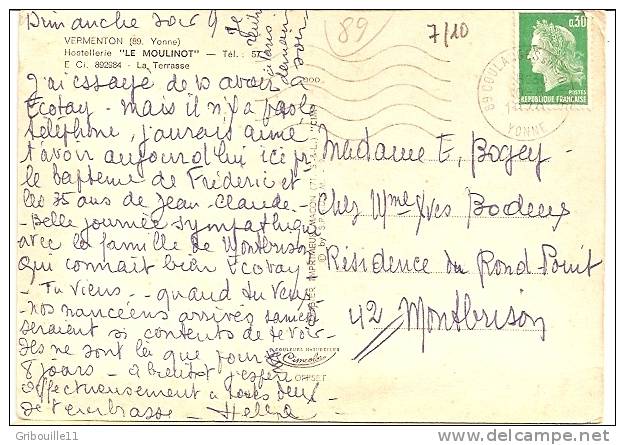 Dimanche soir 9
VERMENTON (89. Yonne)
Hostellerie "LE MOULINOT" - Tél. : 57
E Ci. 892984 - La Terrasse
J'ai essayé de t'avoir à
Ecotay - mais il n'y a pas le
téléphone, j'aurais aimé
t'avoir aujourd'hui ici pr
le baptême de Fréderic et
les 35 ans de Jean-Claude -
- Belle journée sympathique
avec la famille de Montbrison
qui connait bien Ecotay
- Tu viens - quand tu veux
- nos nancéens arrivés samedi
seraient si contents de te voir -
Ils ne sont là que pour
8 jours - à bientôt j'espère
affectueusement à toutes deux
je t'embrasse - Hélène
89
7/10
0.30
POSTES
REPUBLIQUE FRANÇAISE
YONNE
Madame E. Bogey -
Chez Mme Yves Bodeus
Résidence du Rond-Point
42 Montbrison
COULEURS NATURELLES
Cim
OFFSET
Gribouille11
delcampe.net